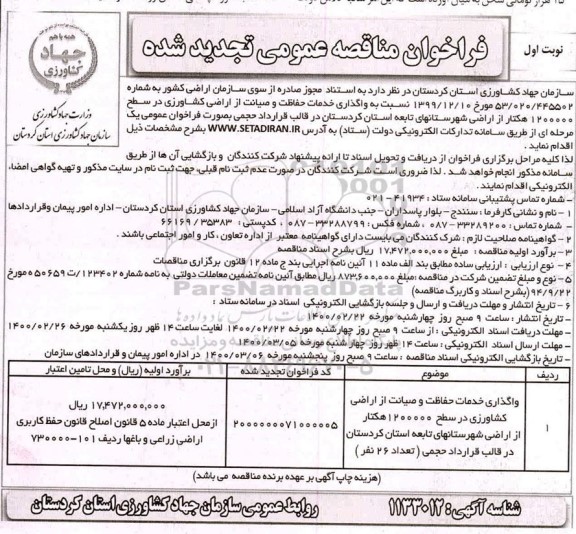 فراخوان مناقصه عمومی تجدید شده
نوبت اول
جهاد کشاورزی
وزارت جهاد کشاورزی
سازمان جهاد کشاورزی استان کردستان
سازمان جهاد کشاورزی استان کردستان در نظر دارد به استناد مجوز صادره از سوی سازمان اراضی کشور به شماره
۵۳/۰۲۰/۴۴۵۵۰۲ مورخ ۱۳۹۹/۱۲/۱۰ نسبت به واگذاری خدمات حفاظت و صیانت از اراضی کشاورزی در سطح
۱۲۰۰۰۰۰ هکتار از اراضی شهرستانهای تابعه استان کردستان در قالب قرارداد حجمی بصورت فراخوان عمومی یک
مرحله ای از طریق سامانه تدارکات الکترونیکی دولت (ستاد) به آدرس WWW.SETADIRAN.IR بشرح مشخصات ذیل
اقدام نماید .
لذا کلیه مراحل برگزاری فراخوان از دریافت و تحویل اسناد تا ارائه پیشنهاد شرکت کنندگان و بازگشایی آن ها از طریق
سامانه مذکور انجام خواهد شد . لذا ضروری است شرکت کنندگان در صورت عدم ثبت نام قبلی، جهت ثبت نام در سایت مذکور و تهیه گواهی امضاء
الکترونیکی اقدام نمایند .
- شماره تماس پشتیبانی سامانه ستاد : ۴۱۹۳۴-۰۲۱
۱ - نام و نشانی کارفرما : سنندج - بلوار پاسداران - جنب دانشگاه آزاد اسلامی - سازمان جهاد کشاورزی استان کردستان - اداره امور پیمان وقراردادها
- شماره تماس : ۳۳۲۸۹۲۰۰- ۰۸۷ ، شماره فکس : ۳۳۲۸۸۷۹۹-۰۸۷ ، کدپستی : ۳۵۳۸۳ / ۶۶۱۶۹
۲ - گواهینامه صلاحیت لازم : شرک کنندگان می بایست دارای گواهینامه معتبر از اداره تعاون ، کار و امور اجتماعی باشند .
۳ - برآورد اولیه مناقصه : مبلغ ۱۷,۴۷۲,۰۰۰,۰۰۰ ریال بشرح اسناد مناقصه
۴ - نوع ارزیابی : ارزیابی ساده مطابق بند الف ماده ۱۱ آئین نامه اجرایی بند ج ماده ۱۲ قانون برگزاری مناقصات
۵ - نوع و مبلغ تضمین شرکت در مناقصه :مبلغ ۸۷۳,۶۰۰,۰۰۰ ریال مطابق آئین نامه تضمین معاملات دولتی به نامه شماره ۱۲۳۴۰۲/ت۵۰۶۵۹ مورخ
۹۴/۹/۲۲ (بشرح اسناد و کاربرگ مناقصه)
۶ - تاریخ انتشار و مهلت دریافت و ارسال و جلسه بازگشایی الکترونیکی اسناد در سامانه ستاد :
- تاریخ انتشار : ساعت ۹ صبح روز چهارشنبه مورخه ۱۴۰۰/۰۲/۲۲
- مهلت دریافت اسناد الکترونیکی : از ساعت ۹ صبح روز چهارشنبه مورخه ۱۴۰۰/۰۲/۲۲ لغایت ساعت ۱۴ ظهر روز یکشنبه مورخه ۱۴۰۰/۰۲/۲۶
- مهلت ارسال اسناد الکترونیکی : ساعت ۱۴ ظهر روز چهارشنبه مورخه ۱۴۰۰/۰۳/۰۵
- تاریخ بازگشایی الکترونیکی اسناد مناقصه : ساعت ۹ صبح روز پنجشنبه مورخه ۱۴۰۰/۰۳/۰۶ در اداره امور پیمان و قراردادهای سازمان
ردیف موضوع کد فراخوان تجدید شده برآورد اولیه (ریال) و محل تامین اعتبار
۱
واگذاری خدمات حفاظت و صیانت از اراضی
کشاورزی در سطح ۱۲۰۰۰۰۰ هکتار
از اراضی شهرستانهای تابعه استان کردستان
در قالب قرارداد حجمی ( تعداد ۲۶ نفر )
۲۰۰۰۰۰۰۰۷۱۰۰۰۰۰۵
۱۷,۴۷۲,۰۰۰,۰۰۰ ریال
ازمحل اعتبار ماده ۵ قانون اصلاح قانون حفظ کاربری
اراضی زراعی و باغها ردیف ۱۰۱-۷۳۰۰۰۰
(هزینه چاپ آگهی بر عهده برنده مناقصه می باشد)
شناسه آگهی: ۱۱۳۳۰۱۲
روابط عمومی سازمان جهاد کشاورزی استان کردستان
ParsNamadData